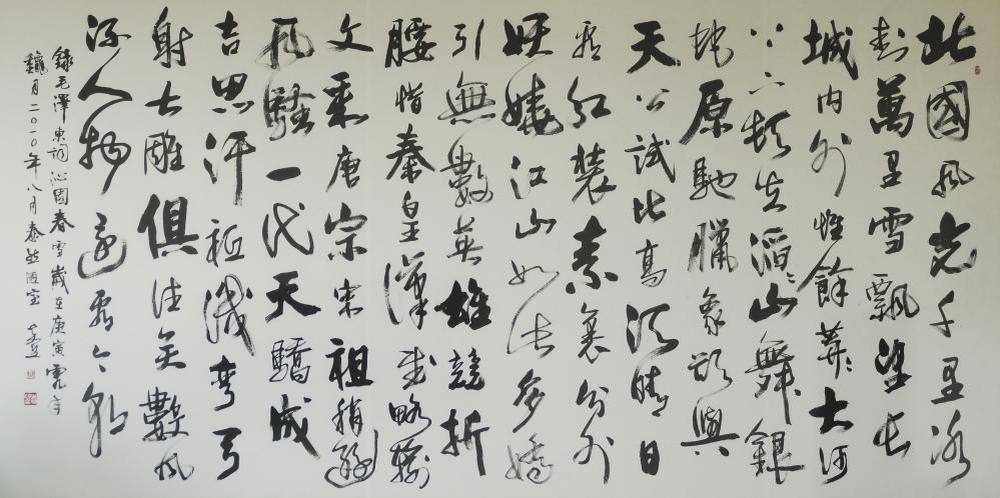 北國風光千里冰
封萬里雪飄望長
城内外惟餘莽〻大河
上下頓失滔〻山舞銀
蛇原馳臘象欲與
天公試比高須晴日
看紅裝素裹分外
妖嬈江山如此多嬌
引無數英雄競折
腰惜秦皇漢武略輸
文采唐宗宋祖稍遜
風騷一代天驕成
吉思汗祗識彎弓
射大雕俱往矣數風
流人物還看今朝
錄毛澤東詞沁園春雪歲在庚寅虎年
月二〇一〇年八月泰然